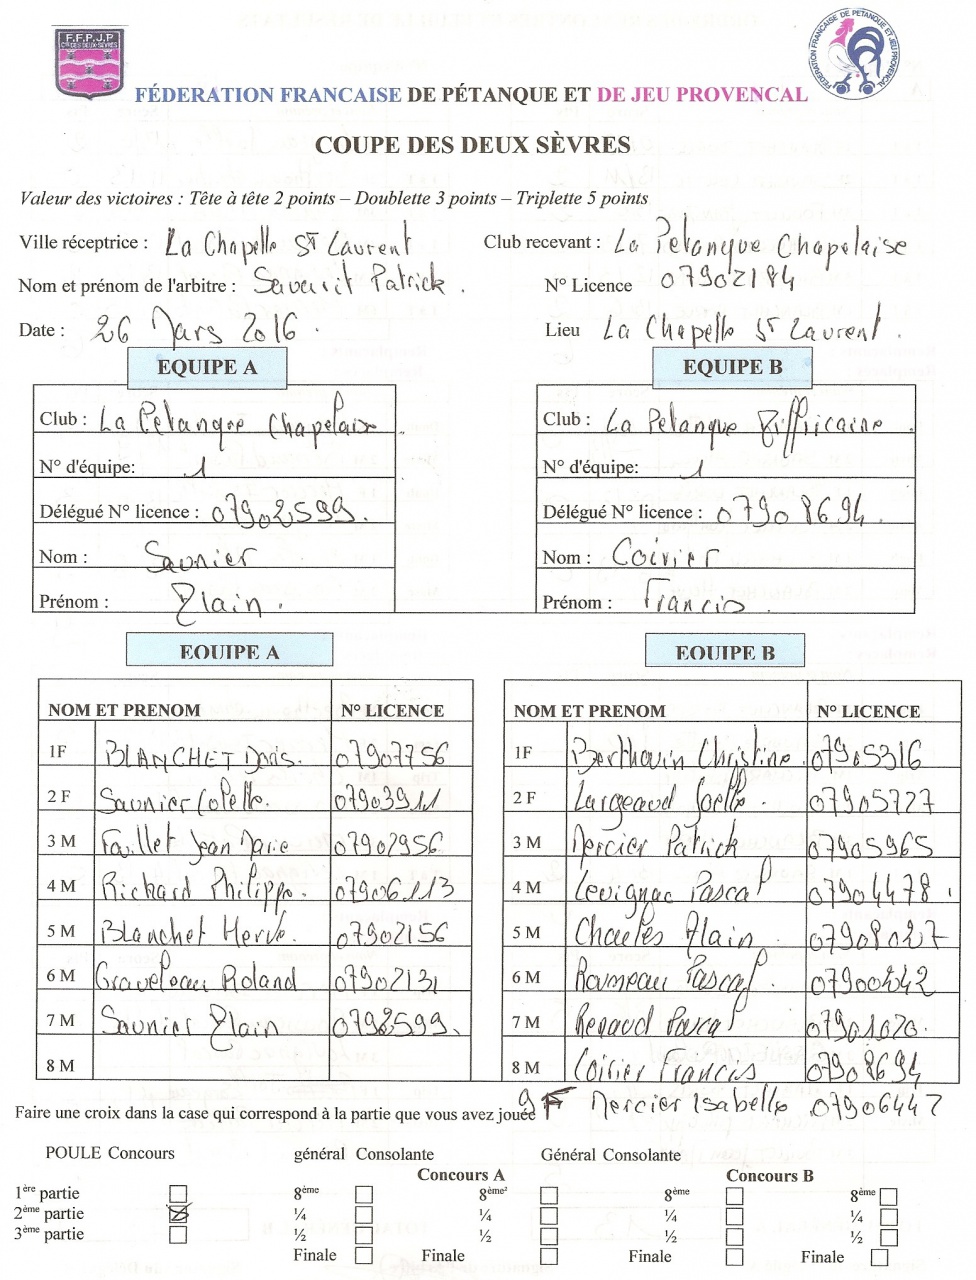 F.F.P.J.P
CD DES DEUX-SÈVRES
FÉDÉRATION FRANÇAISE DE PÉTANQUE ET JEU PROVENÇAL
FÉDERATION FRANCAISE DE PÉTANQUE ET DE JEU PROVENCAL
COUPE DES DEUX SÈVRES
Valeur des victoires : Tête à tête 2 points – Doublette 3 points – Triplette 5 points
Ville réceptrice : La Chapelle St Laurent Club recevant : La Pétanque Chapelaise
Nom et prénom de l'arbitre : Patrick. N° Licence 07902184
Date : 26 Mars 2016. Lieu La Chapelle St Laurent.
EQUIPE A EQUIPE B
Club : La Pétanque Chapelaise Club : La Pétanque
N° d'équipe: 1 N° d'équipe: 1
Délégué N° licence : 07902599. Délégué N° licence : 07908694.
Nom : Saunier Nom : Coirier
Prénom : Alain. Prénom : Francis.
EQUIPE A EQUIPE B
NOM ET PRENOM N° LICENCE NOM ET PRENOM N° LICENCE
1F BLANCHET Doris. 07907756 1F Berthouin Christine. 07905316
2 F Saunier Colette. 07903911 2 F Largeaud Joelle. 07905727
3 M Faillet Jean Marie 07902956 3 M Mercier Patrick 07905965
4 M Richard Philippe. 07906113 4 M Levignac Pascal 07904478.
5 M Blanchet Hervé. 07902156 5 M Charles Alain. 07908027
6 M Graveleau Roland 07902131 6 M Rampeau Pascal. 07900242
7 M Saunier Alain 07902599. 7 M Renaud Pascal 07901020.
8 M 8 M Coirier Francis 07908694
Faire une croix dans la case qui correspond à la partie que vous avez jouée 9 F Mercier Isabelle 07906447
POULE Concours général Consolante Général Consolante
Concours A Concours B
1ère partie 8ème 8ème² 8ème 8ème
2ème partie ¼ ¼ ¼ ¼
3ème partie ½ ½ ½ ½
Finale Finale Finale Finale